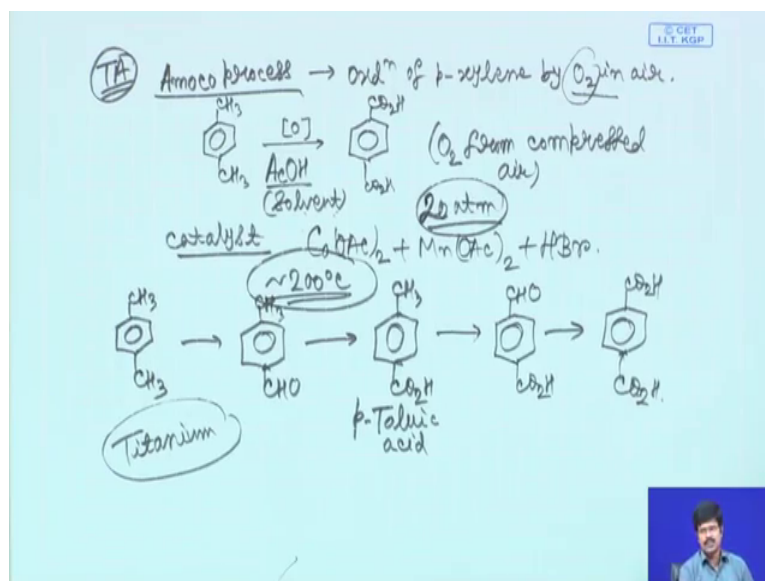 © CET
I.I.T. KGP
TA Amoco process → oxdⁿ of p-xylene by O₂ in air.
CH₃ CO₂H
[O]
AcOH
(Solvent)
CH₃ CO₂H
(O₂ from compressed
air)
20 atm
catalyst Co(OAc)₂ + Mn(OAc)₂ + HBr.
~200°C
CH₃ → CH₃ → CH₃ → CHO → CO₂H
CH₃ CHO CO₂H CO₂H CO₂H.
p-Toluic
acid
Titanium